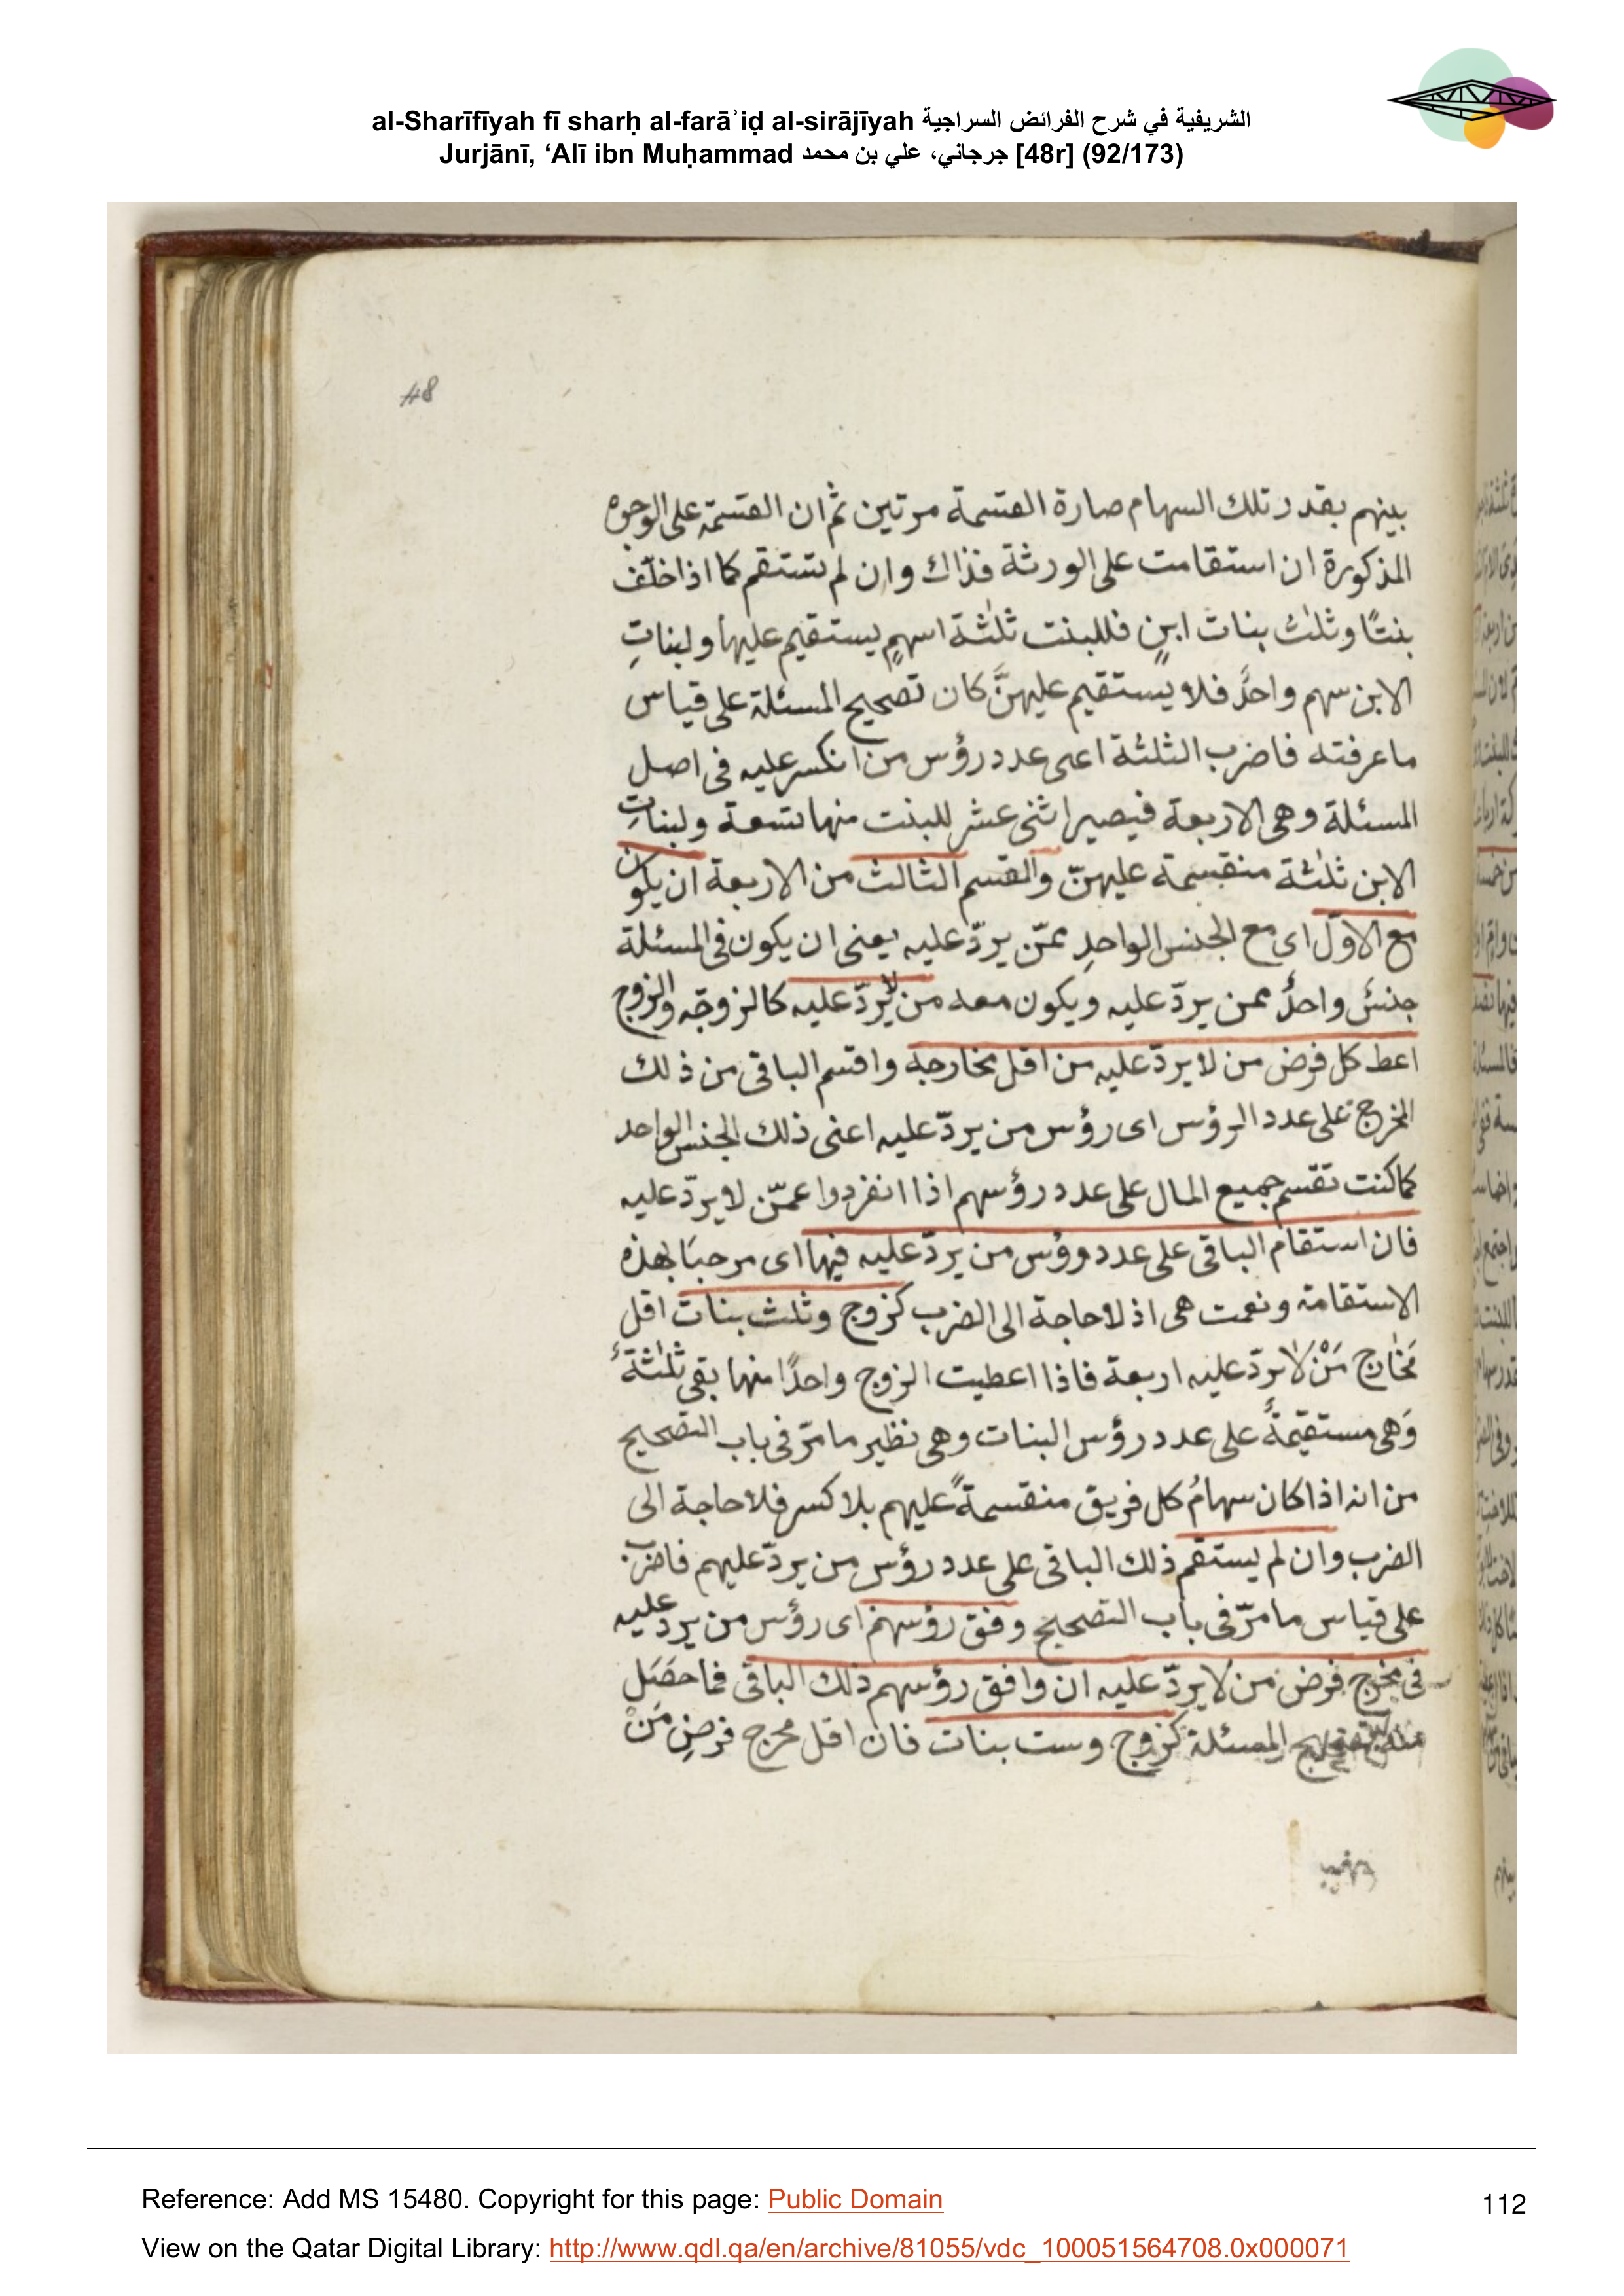 al-Sharīfīyah fī sharḥ al-farāʾiḍ al-sirājīyah الشريفية في شرح الفرائض السراجية
Jurjānī, ‘Alī ibn Muḥammad جرجاني، علي بن محمد [48r] (92/173)
48
بينهم بقدر تلك السهام صارة القسمة مرتين ثم ان القسمة على الوجوه
المذكورة ان استقامت على الورثة فذاك وان لم تستقم كما اذا خلّف
بنتًا وثلٰث بنات ابنٍ فللبنت ثلٰثة اسهمٍ يستقيم عليها ولبناتِ
الابن سهم واحدٌ فلا يستقيم عليهنَّ كان تصحيح المسئلة على قياس
ما عرفته فاضرب الثلثة اعنى عدد رؤس من انكسر عليه فى اصل
المسئلة وهى الاربعة فيصير اثنى عشر للبنت منها تسعة ولبناتِ
الابن ثلٰثة منقسمة عليهنّ والقسم الثالث من الاربعة ان يكون
مع الاوّل اى مع الجنس الواحدِ ممّن يردّ عليه يعنى ان يكون فى المسئلة
جنسٌ واحدٌ ممن يردّ عليه ويكون معه من لا يردّ عليه كالزوجّه والزوج
اعط كل فرض من لا يردّ عليه من اقل مخارجه واقسم الباقى من ذلك
المخرج على عدد الرؤس اى رؤس من يردّ عليه اعنى ذلك الجنس الواحد
كما كنت تقسم جميع المال على عدد رؤسهم اذا انفردوا عمّن لا يردّ عليه
فان استقام الباقى على عدد رؤس من يردّ عليه فيها اى مرحبًا بهذه
الاستقامة ونعمت هى اذ لا حاجة الى الضرب كزوج وثلث بنات اقل
مَخٰارج مَنْ لا يردّ عليه اربعة فاذا اعطيت الزوج واحدًا منها بقى ثلٰثةٌ
وَهى مستقيمةٌ على عدد رؤس البنات وهى نظير ما مرّ فى باب التصحيح
من انه اذا كان سهامُ كل فريق منقسمةً عليهم بلا كسر فلا حاجة الى
الضرب وان لم يستقم ذلك الباقى على عدد رؤس من يردّ عليهم فاضرب
على قياس ما مرّ فى باب التصحيح وفق رؤسهم اى رؤس من يردّ عليه
فى مخرج فرض من لا يردّ عليه ان وافق رؤسهم ذلك الباقى فما حصَل
منه تصحيح المسئلة كزوج وست بنات فان اقل مخرج فرضِ مَنْ
Reference: Add MS 15480. Copyright for this page: Public Domain
112
View on the Qatar Digital Library: http://www.qdl.qa/en/archive/81055/vdc_100051564708.0x000071